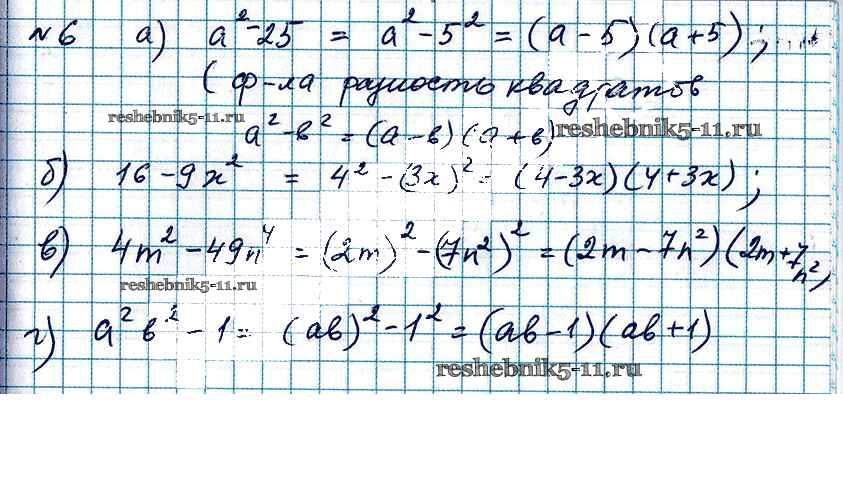 №6 а) a² - 25 = a² - 5² = (a - 5)(a + 5);
(ф-ла разность квадратов
reshebnik5-11.ru
a² - в² = (a - в)(a + в)
reshebnik5-11.ru
б) 16 - 9x² = 4² - (3x)² = (4 - 3x)(4 + 3x);
в) 4m² - 49n⁴ = (2m)² - (7n²)² = (2m - 7n²)(2m + 7n²),
reshebnik5-11.ru
г) a² в² - 1 = (ab)² - 1² = (ab - 1)(ab + 1)
reshebnik5-11.ru